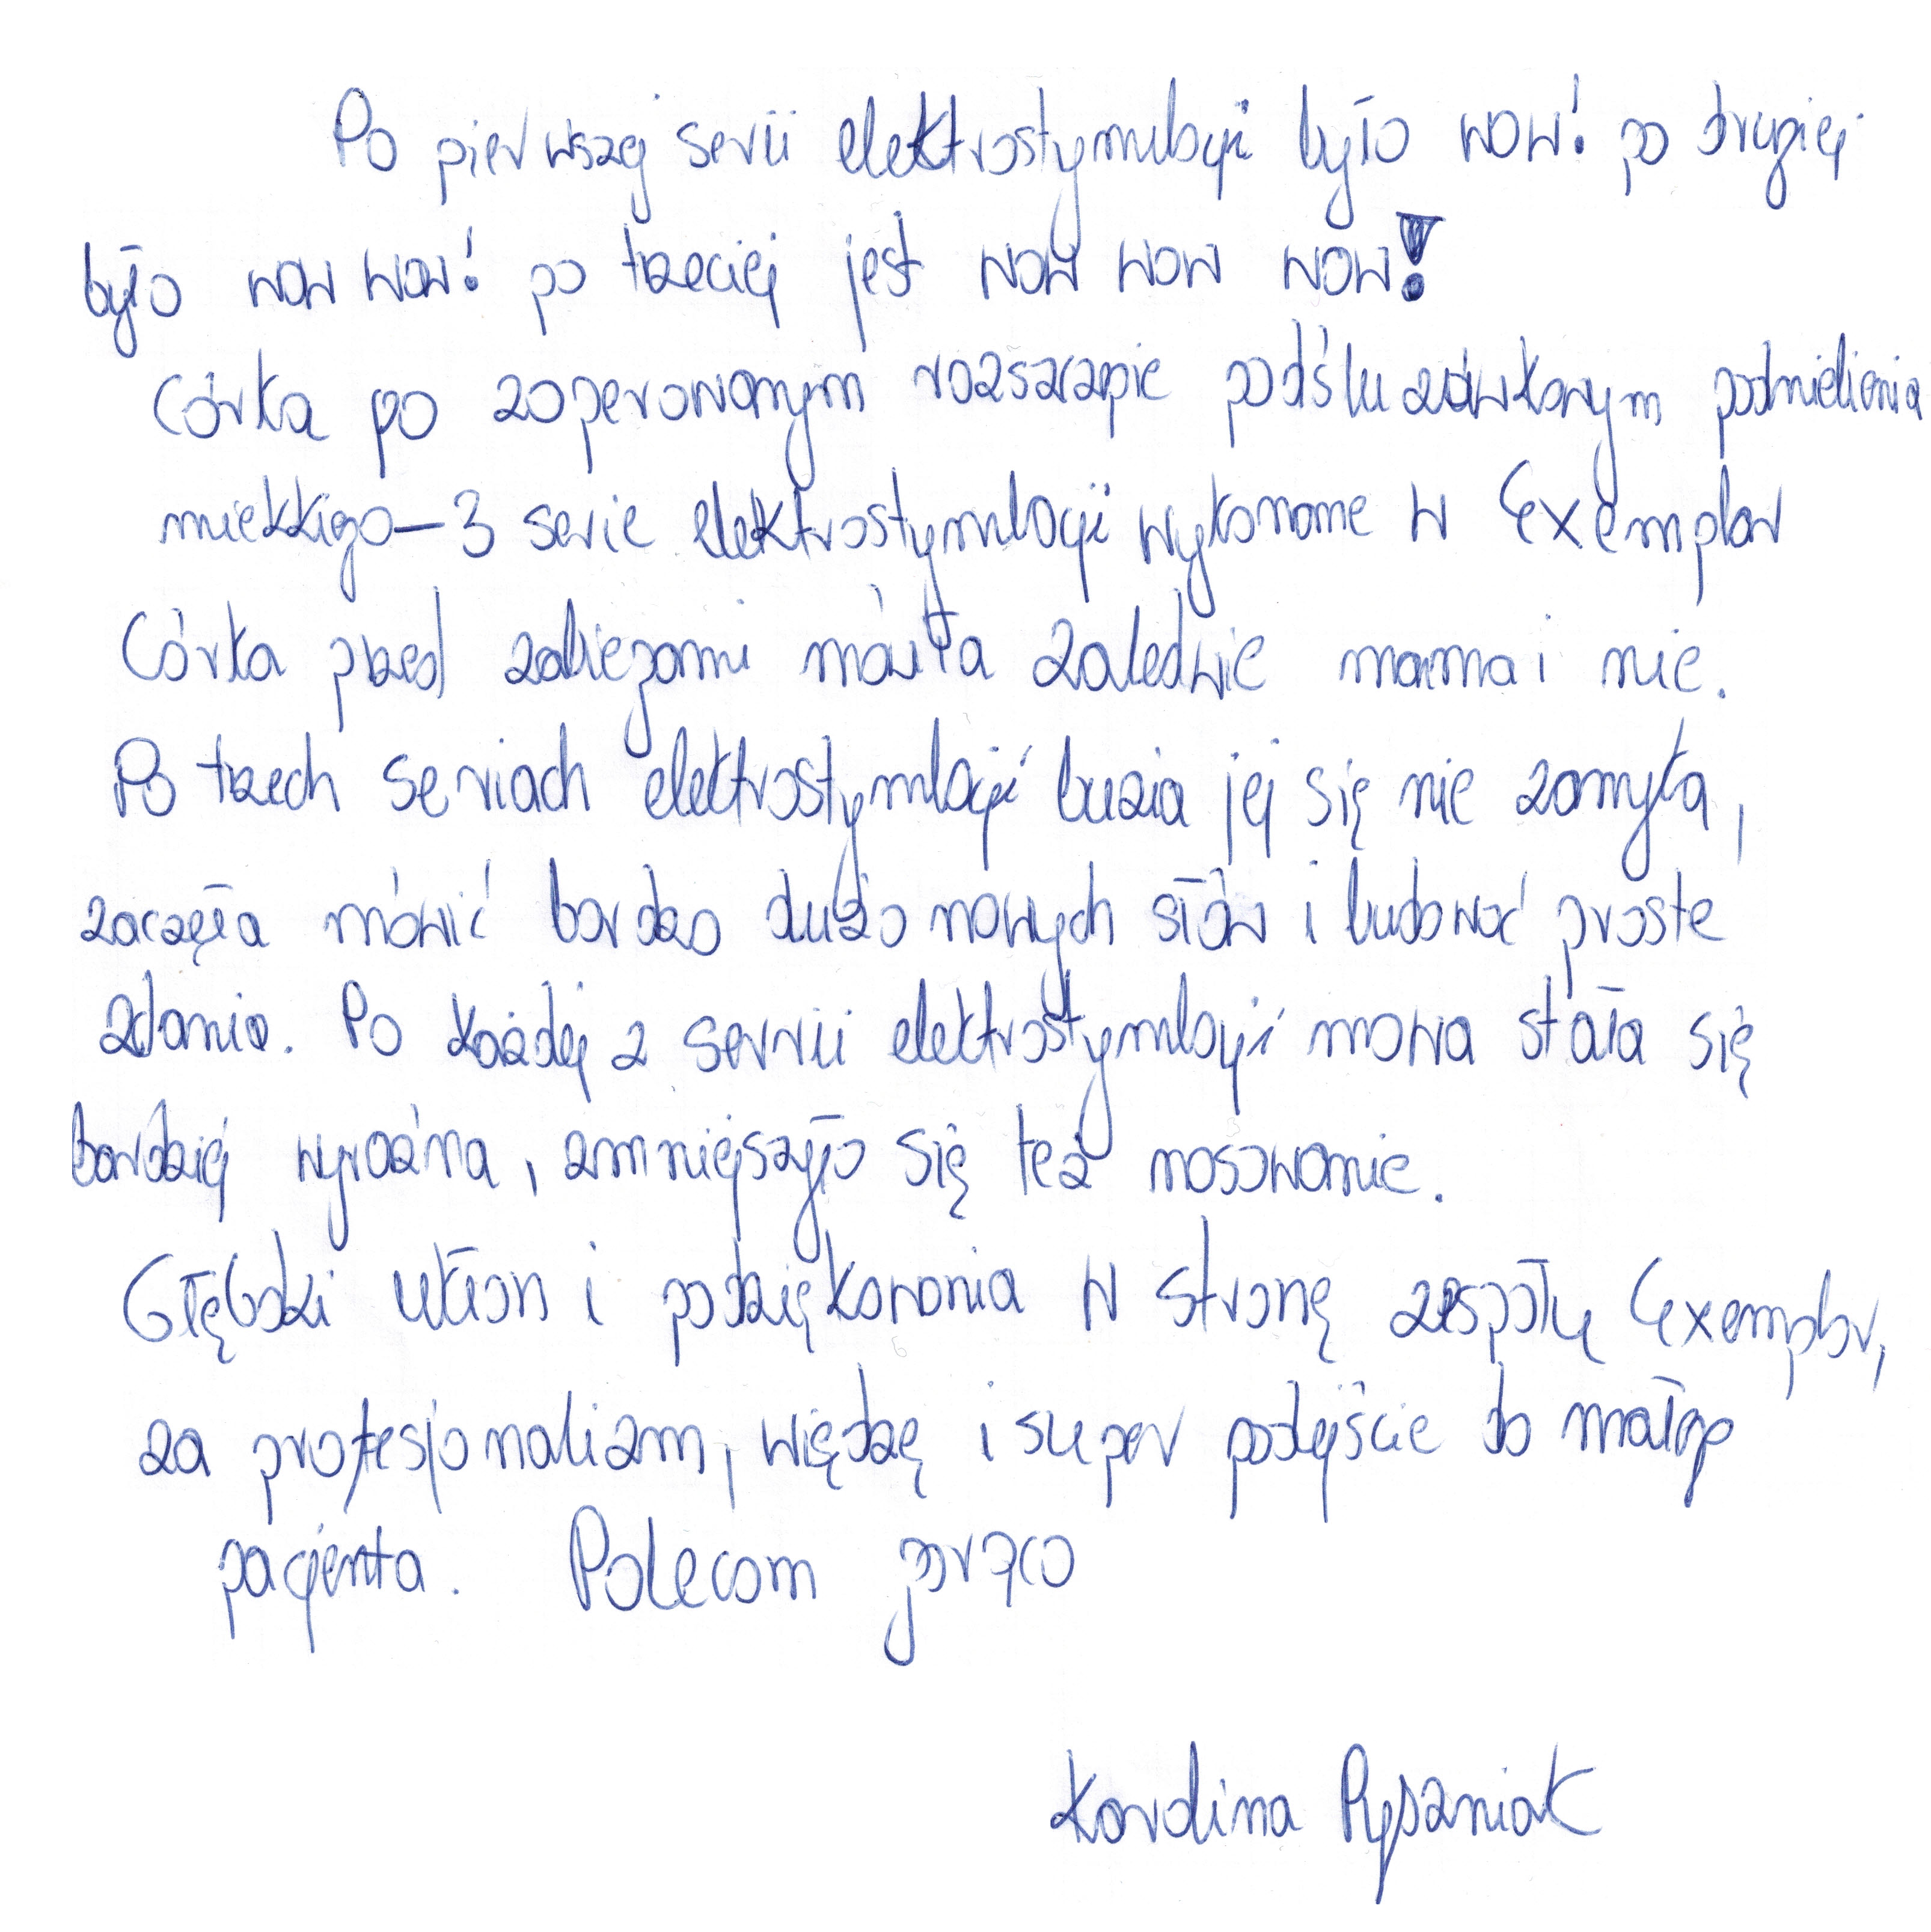 Po pierwszej serii elektrostymulacji było wow! po drugiej
było wow wow! po trzeciej jest wow wow wow!
Córka po zoperowanym rozszczepie podśluzówkowym podniebienia
miękkiego – 3 serie elektrostymulacji wykonane w Exemplar
Córka przed zabiegami mówiła zaledwie mama i nie.
Po trzech seriach elektrostymulacji buzia jej się nie zamyka,
zaczęła mówić bardzo dużo nowych słów i budować proste
zdania. Po każdej z serii elektrostymulacji mowa stała się
bardziej wyraźna, zmniejszyło się też nosowanie.
Głęboki ukłon i podziękowania w stronę zespołu Exemplar,
za profesjonalizm, więdzę i super podejście do małego
pacjenta. Polecam gorąco
Karolina Pyszniak